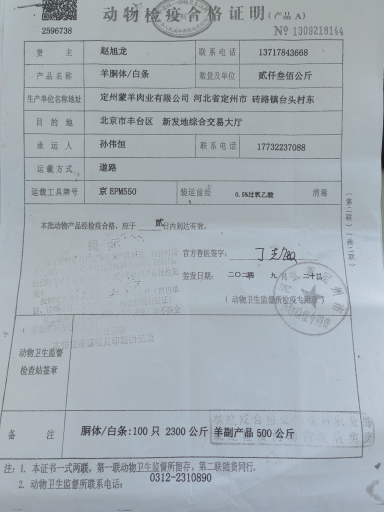 动物检疫合格证明(产品 A)
2596738
№ 1309218144
货 主 赵旭龙 联系电话 13717843668
产品名称 羊胴体/白条 数量及单位 贰仟叁佰公斤
生产单位名称地址 定州蒙羊肉业有限公司 河北省定州市 砖路镇台头村东
目的地 北京市丰台区 新发地综合交易大厅
承运人 孙伟恒 联系电话 17732237088
运载方式 道路
运载工具牌号 京 EPM550 装运前经 0.5%过氧乙酸 消毒
本批动物产品经检疫合格,应于 贰 日内到达有效。
官方兽医签字:
签发日期: 二〇二四 九月 二十日
(动物卫生监督所检疫专用章)
(第二联)
动物卫生监督
检查站签章
备 注 胴体/白条:100 只 2300 公斤 羊副产品 500 公斤
注:1. 本证书一式两联,第一联动物卫生监督所留存,第二联随货同行。
2. 动物卫生监督所联系电话: 0312-2310890